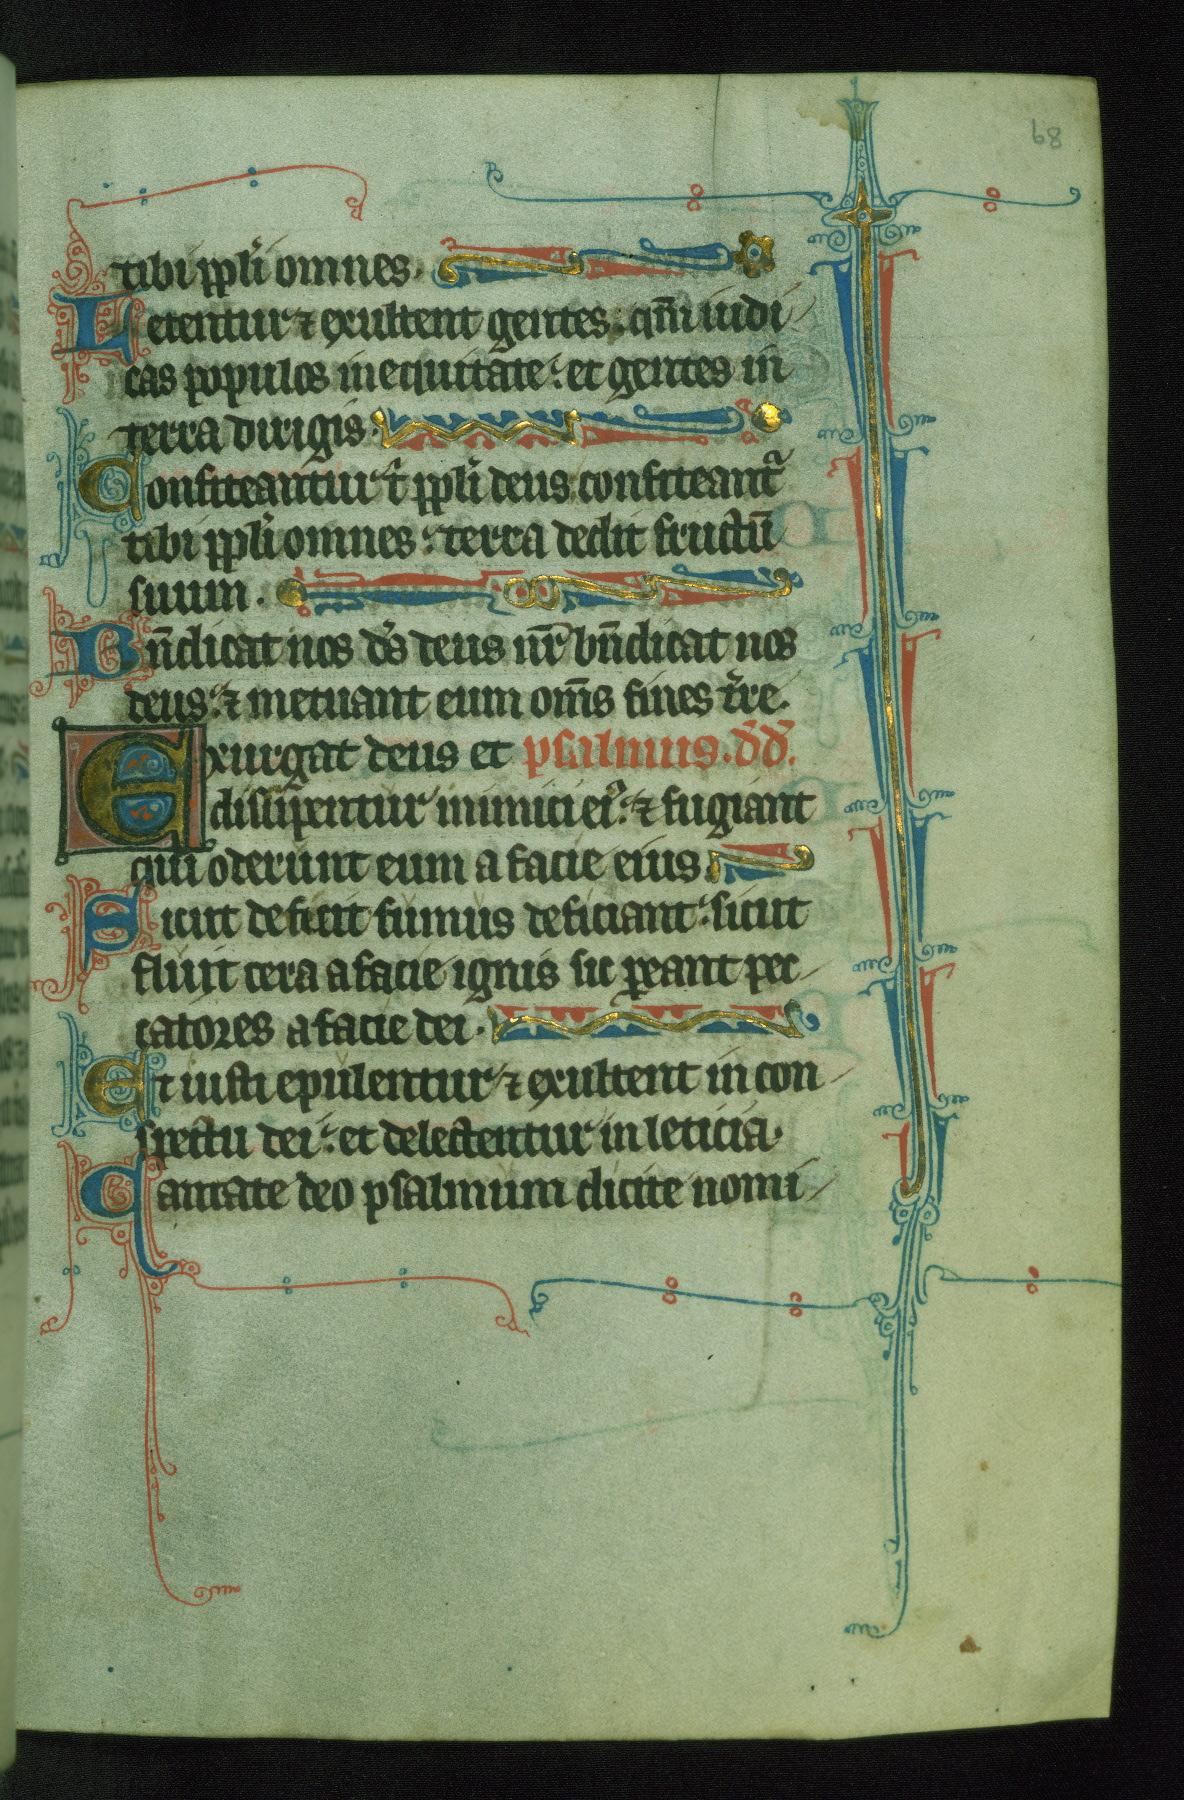 68
tibi ppl̓i omnes.
Letentur ⁊ exultent gentes. qm̄ iudi
cas populos in equitate: et gentes in
terra dirigis.
Confiteantur t̓ ppl̓i deus confiteant᷑
tibi ppl̓i omnes: terra dedit fructū
suum.
Bn̄dicat nos d̓s deus nr̄ bn̄dicat nos
deus: ⁊ metuant eum om̄s fines t̓re.
Exurgat deus et psalmus. d̄d̄.
dissip̓entur inimici ei᷒: ⁊ fugiant
qui oderunt eum a facie eius.
Sicut deficit fumus deficiant: sicut
fluit cera a facie ignis sic ꝑeant pec
catores a facie dei.
Et iusti epulentur ⁊ exultent in con
spectu dei: et delectentur in leticia.
Cantate deo psalmum dicite nomi